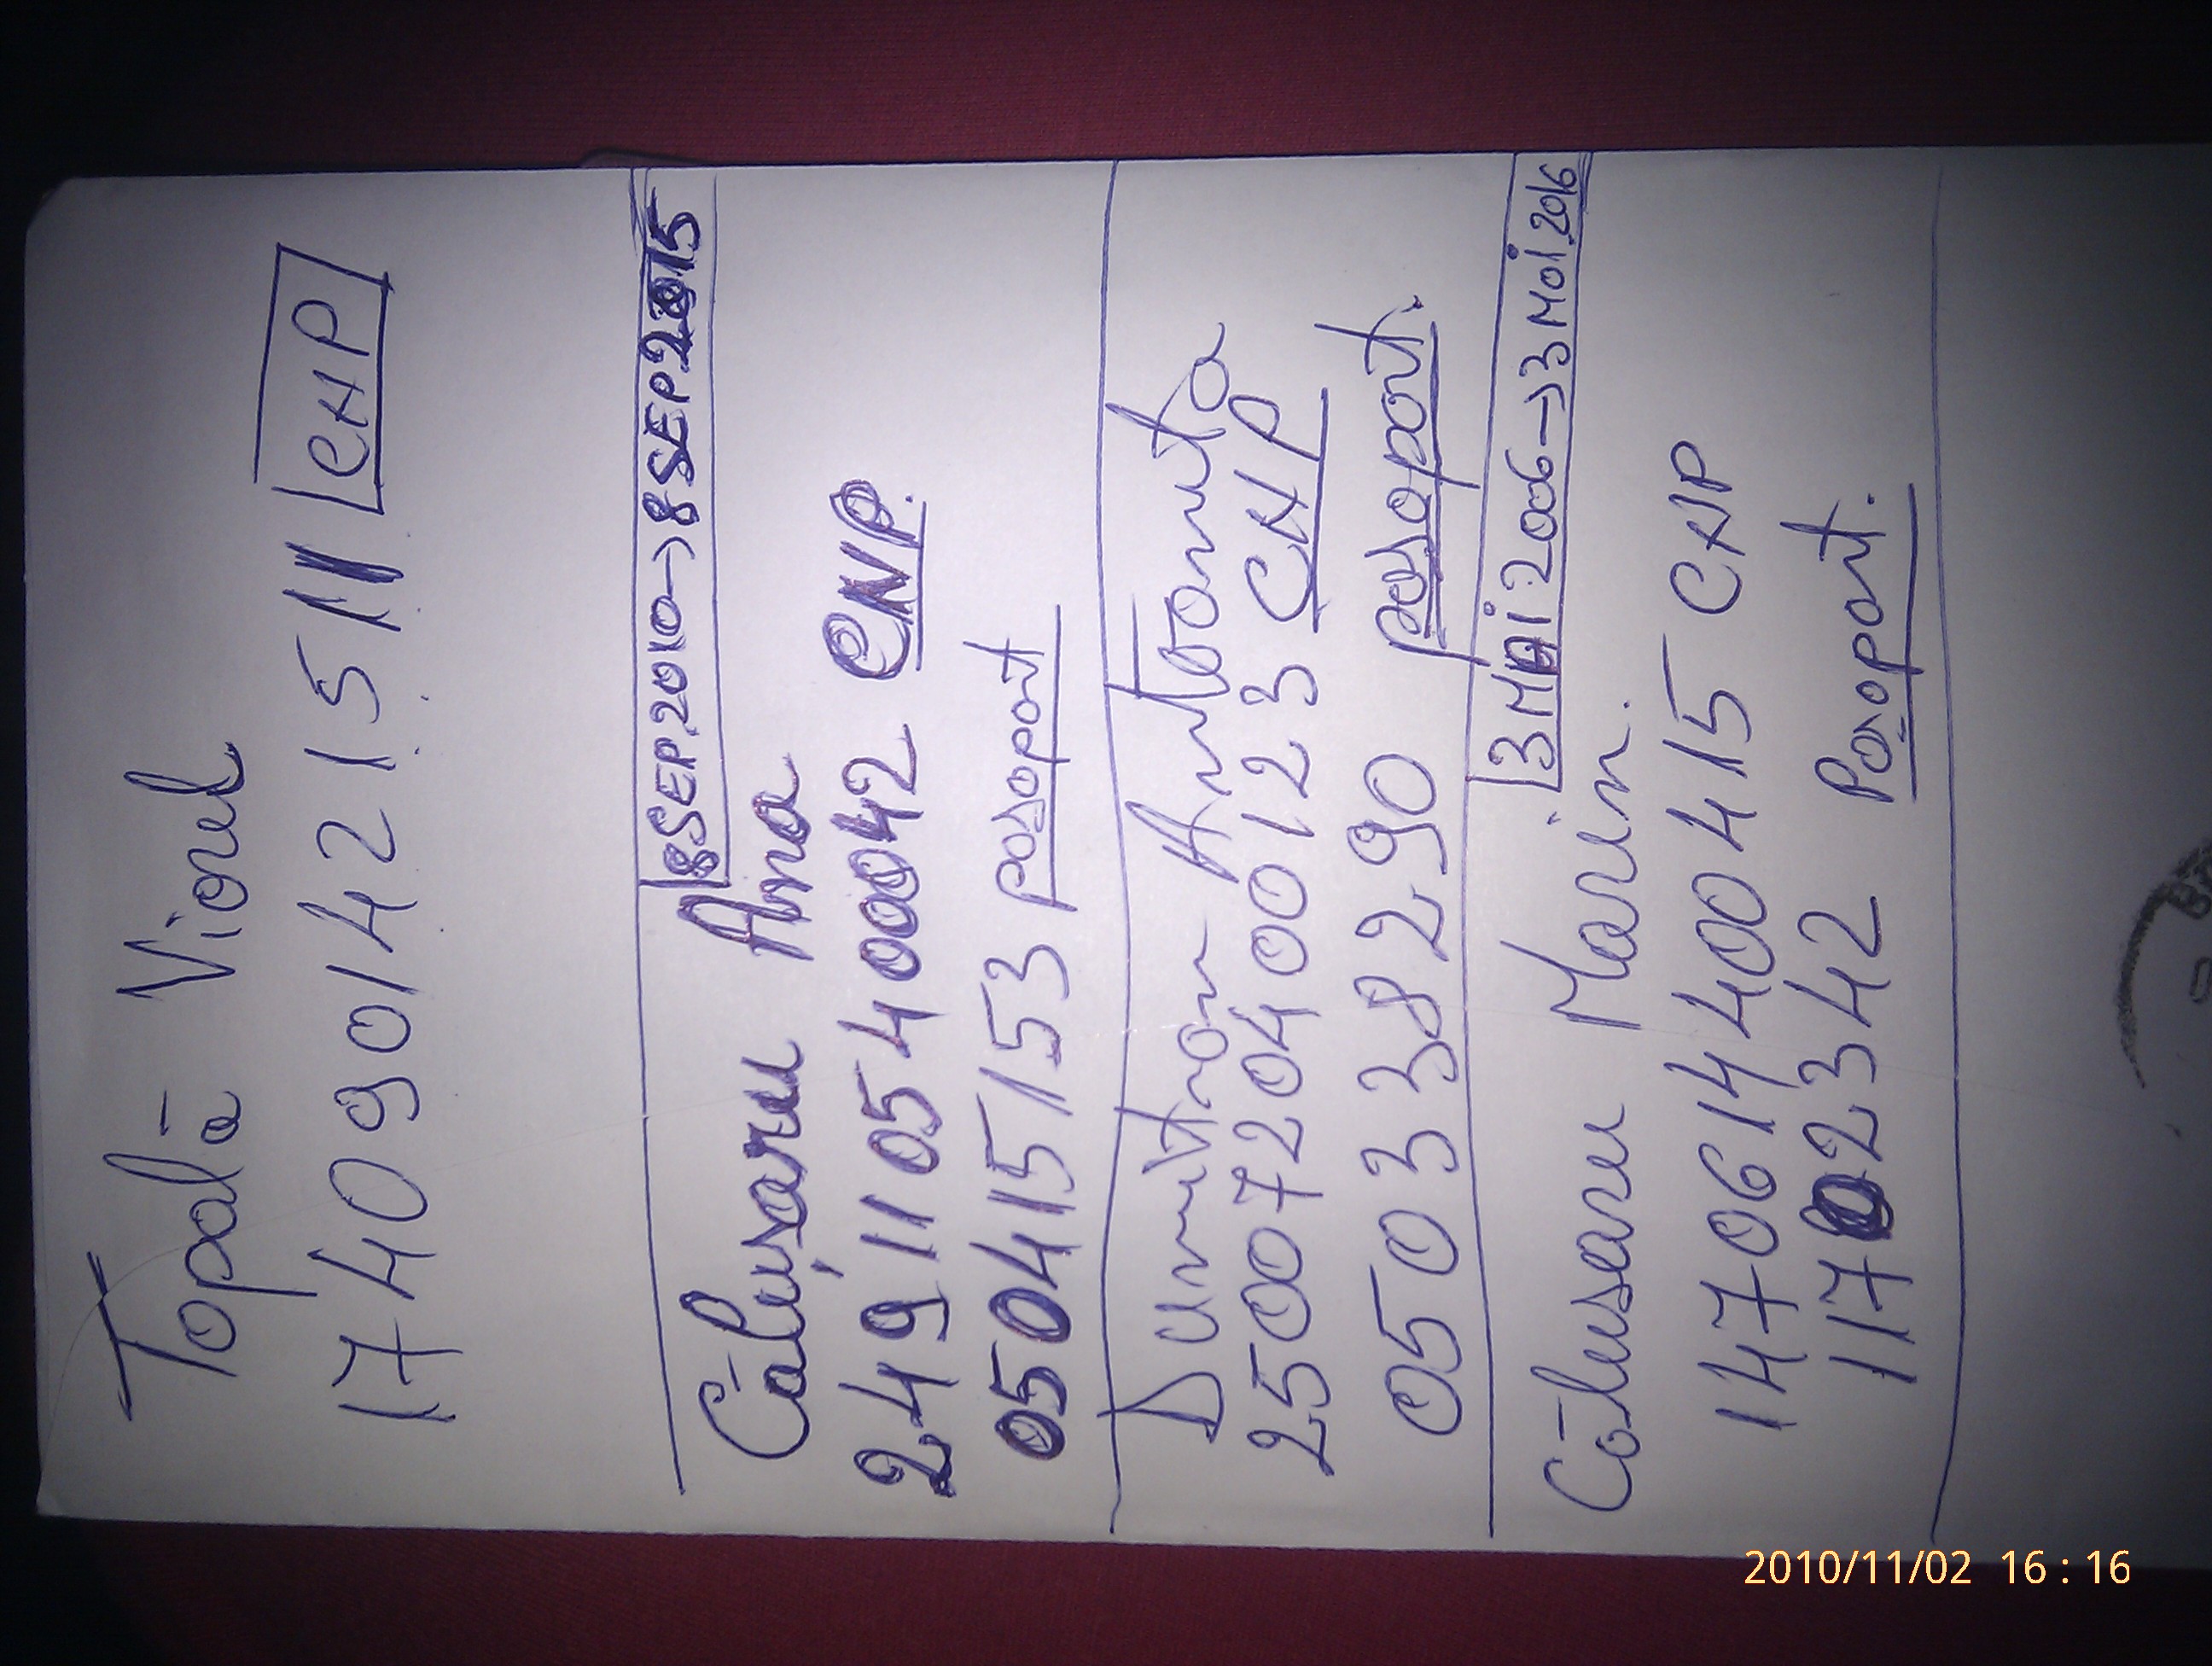 Topală Viorel
1740901421511 CNP
8 SEP.2010→8 SEP.2015
Călușaru Ana
2491105400042 CNP.
050415153 pasaport
Dumitran Antoaneta
2500720400123 CNP
05038290 pasaport.
3 MAI 2006→3 Mai 2016
Călusaru Marin.
1470614400415 CNP
11702342 Pasaport.
2010/11/02 16:16